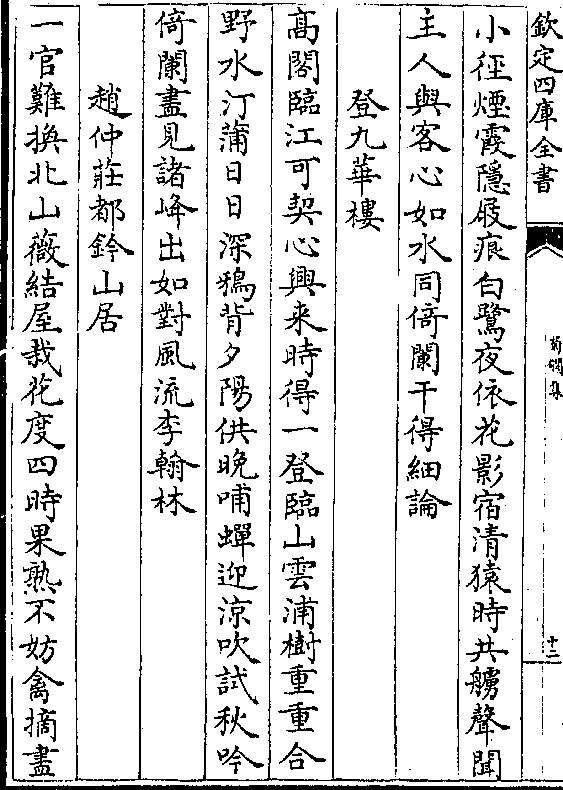 欽定四庫全書
蘜磵集
十二
小徑煙霞隱屐痕白鷺夜依花影宿清猿時共艣聲聞
主人與客心如水同倚闌干得細論
登九華樓
高閣臨江可契心興来時得一登臨山雲浦樹重重合
野水汀蒲日日深鴉背夕陽供晚哺蟬迎涼吹試秋吟
倚闌盡見諸峰出如對風流李翰林
趙仲莊都鈐山居
一官難换北山薇結屋栽花度四時果熟不妨禽摘盡